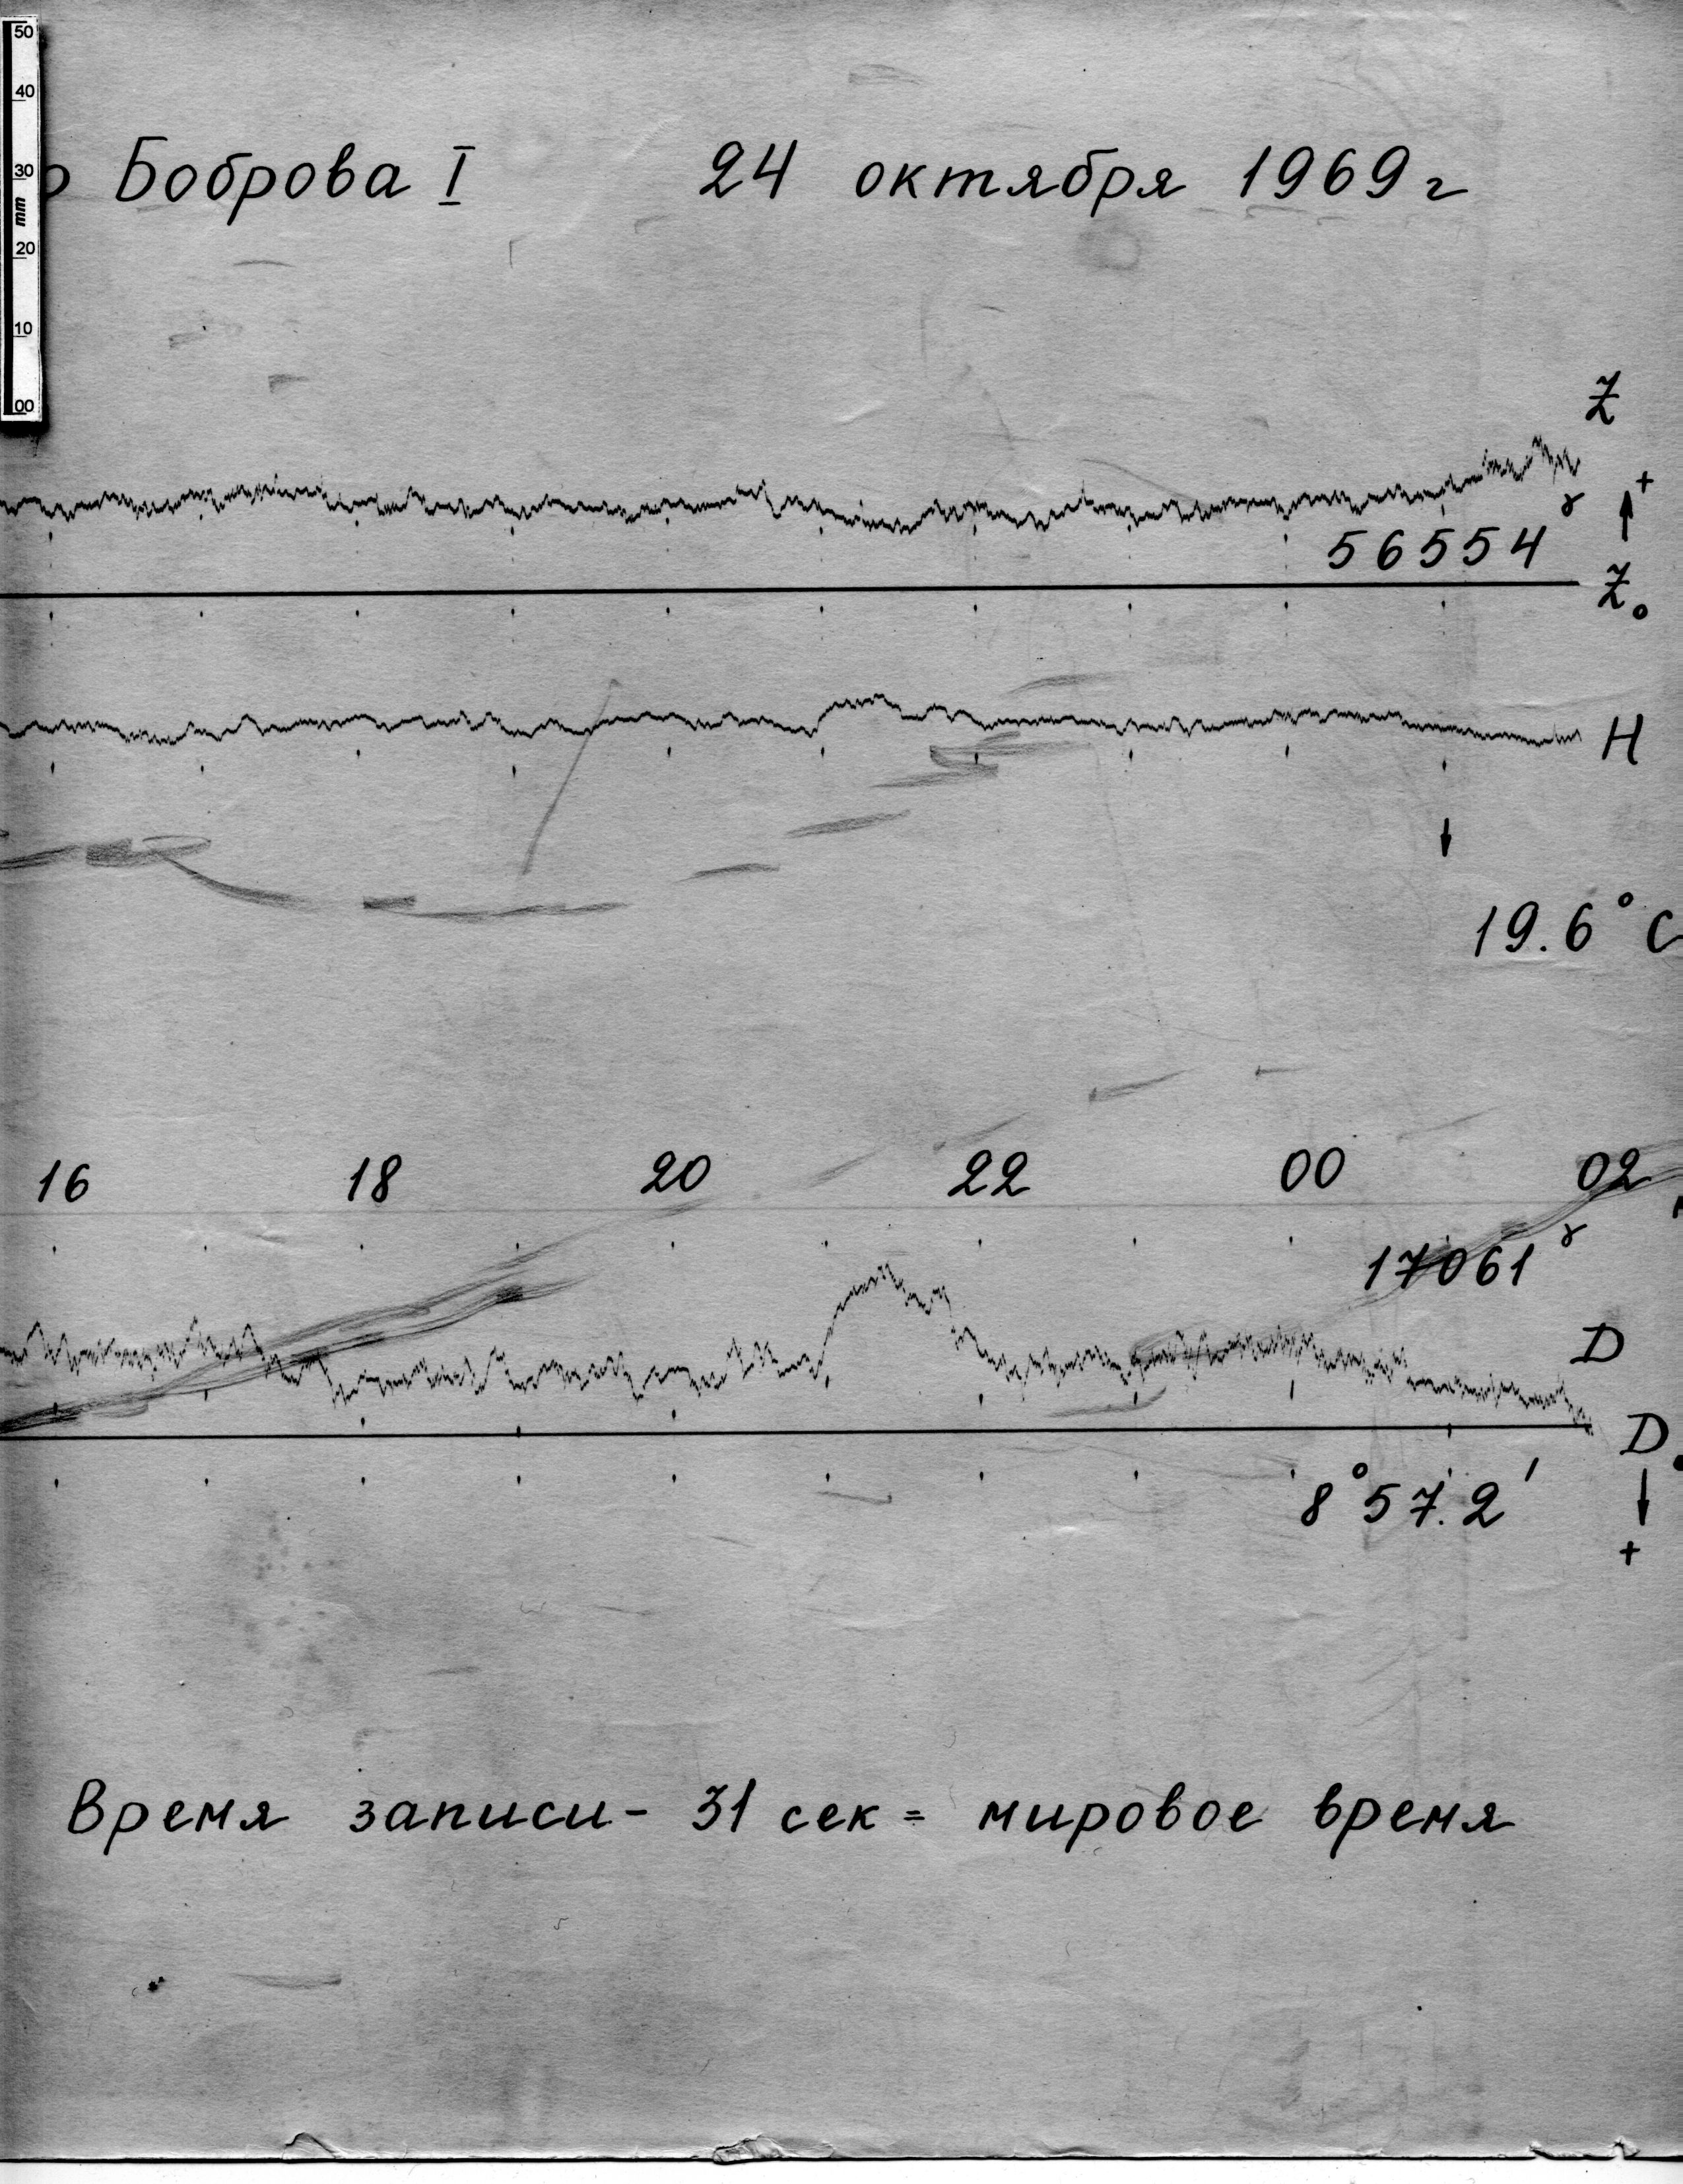 50
40
30
mm
20
10
00
о Боброва I 24 октября 1969 г
Z
+
56554 γ
Z₀
H
19.6° C
16 18 20 22 00 02
17061 γ
D
D₀
8° 57.2′
+
Время записи - 31 сек = мировое время